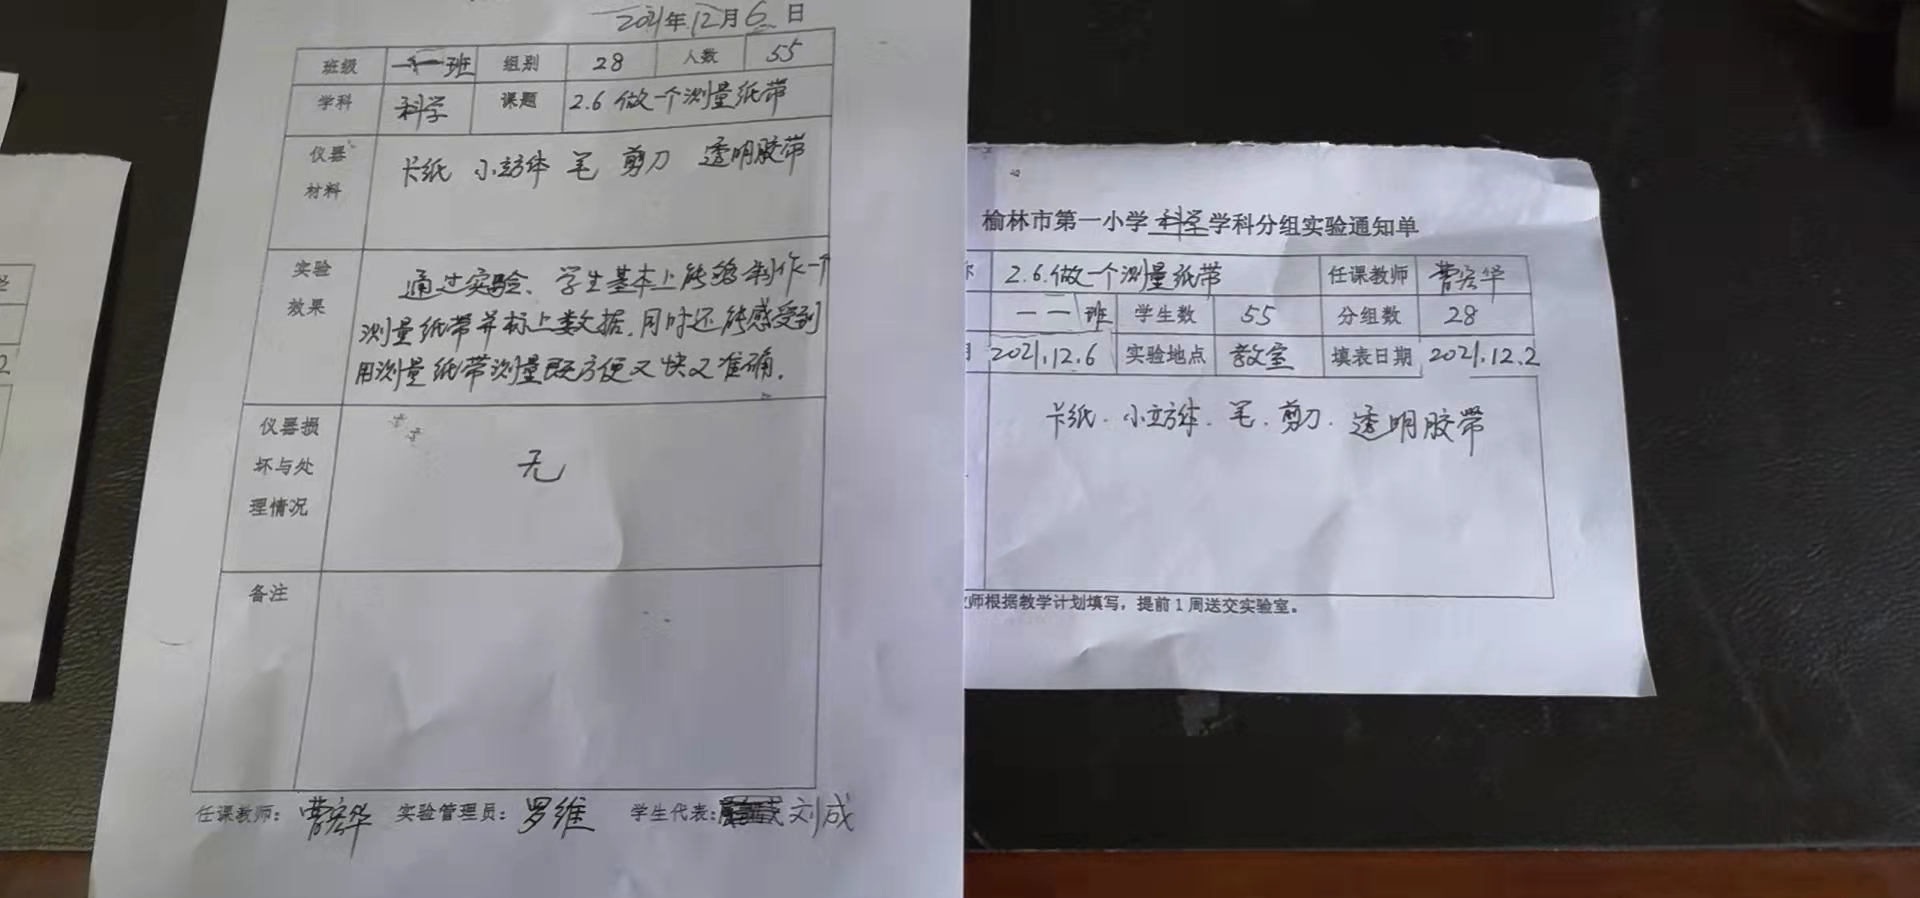 2021年12月6日
班级 一一班 组别 28 人数 55
学科 科学 课题 2.6 做一个测量纸带
仪器
材料
卡纸 小立方体 笔 剪刀 透明胶带
实验
效果
通过实验、学生基本上能够制作一个
测量纸带并标上数据.同时还能感受到
用测量纸带测量既方便又快又准确.
仪器损
坏与处
理情况
无
备注
任课教师: 曹宏华 实验管理员: 罗维 学生代表: 刘成
榆林市第一小学科学学科分组实验通知单
2.6.做一个测量纸带 任课教师 曹宏华
一一班 学生数 55 分组数 28
2021.12.6 实验地点 教室 填表日期 2021.12.2
卡纸.小立方体.笔.剪刀.透明胶带
师根据教学计划填写，提前1周送交实验室。